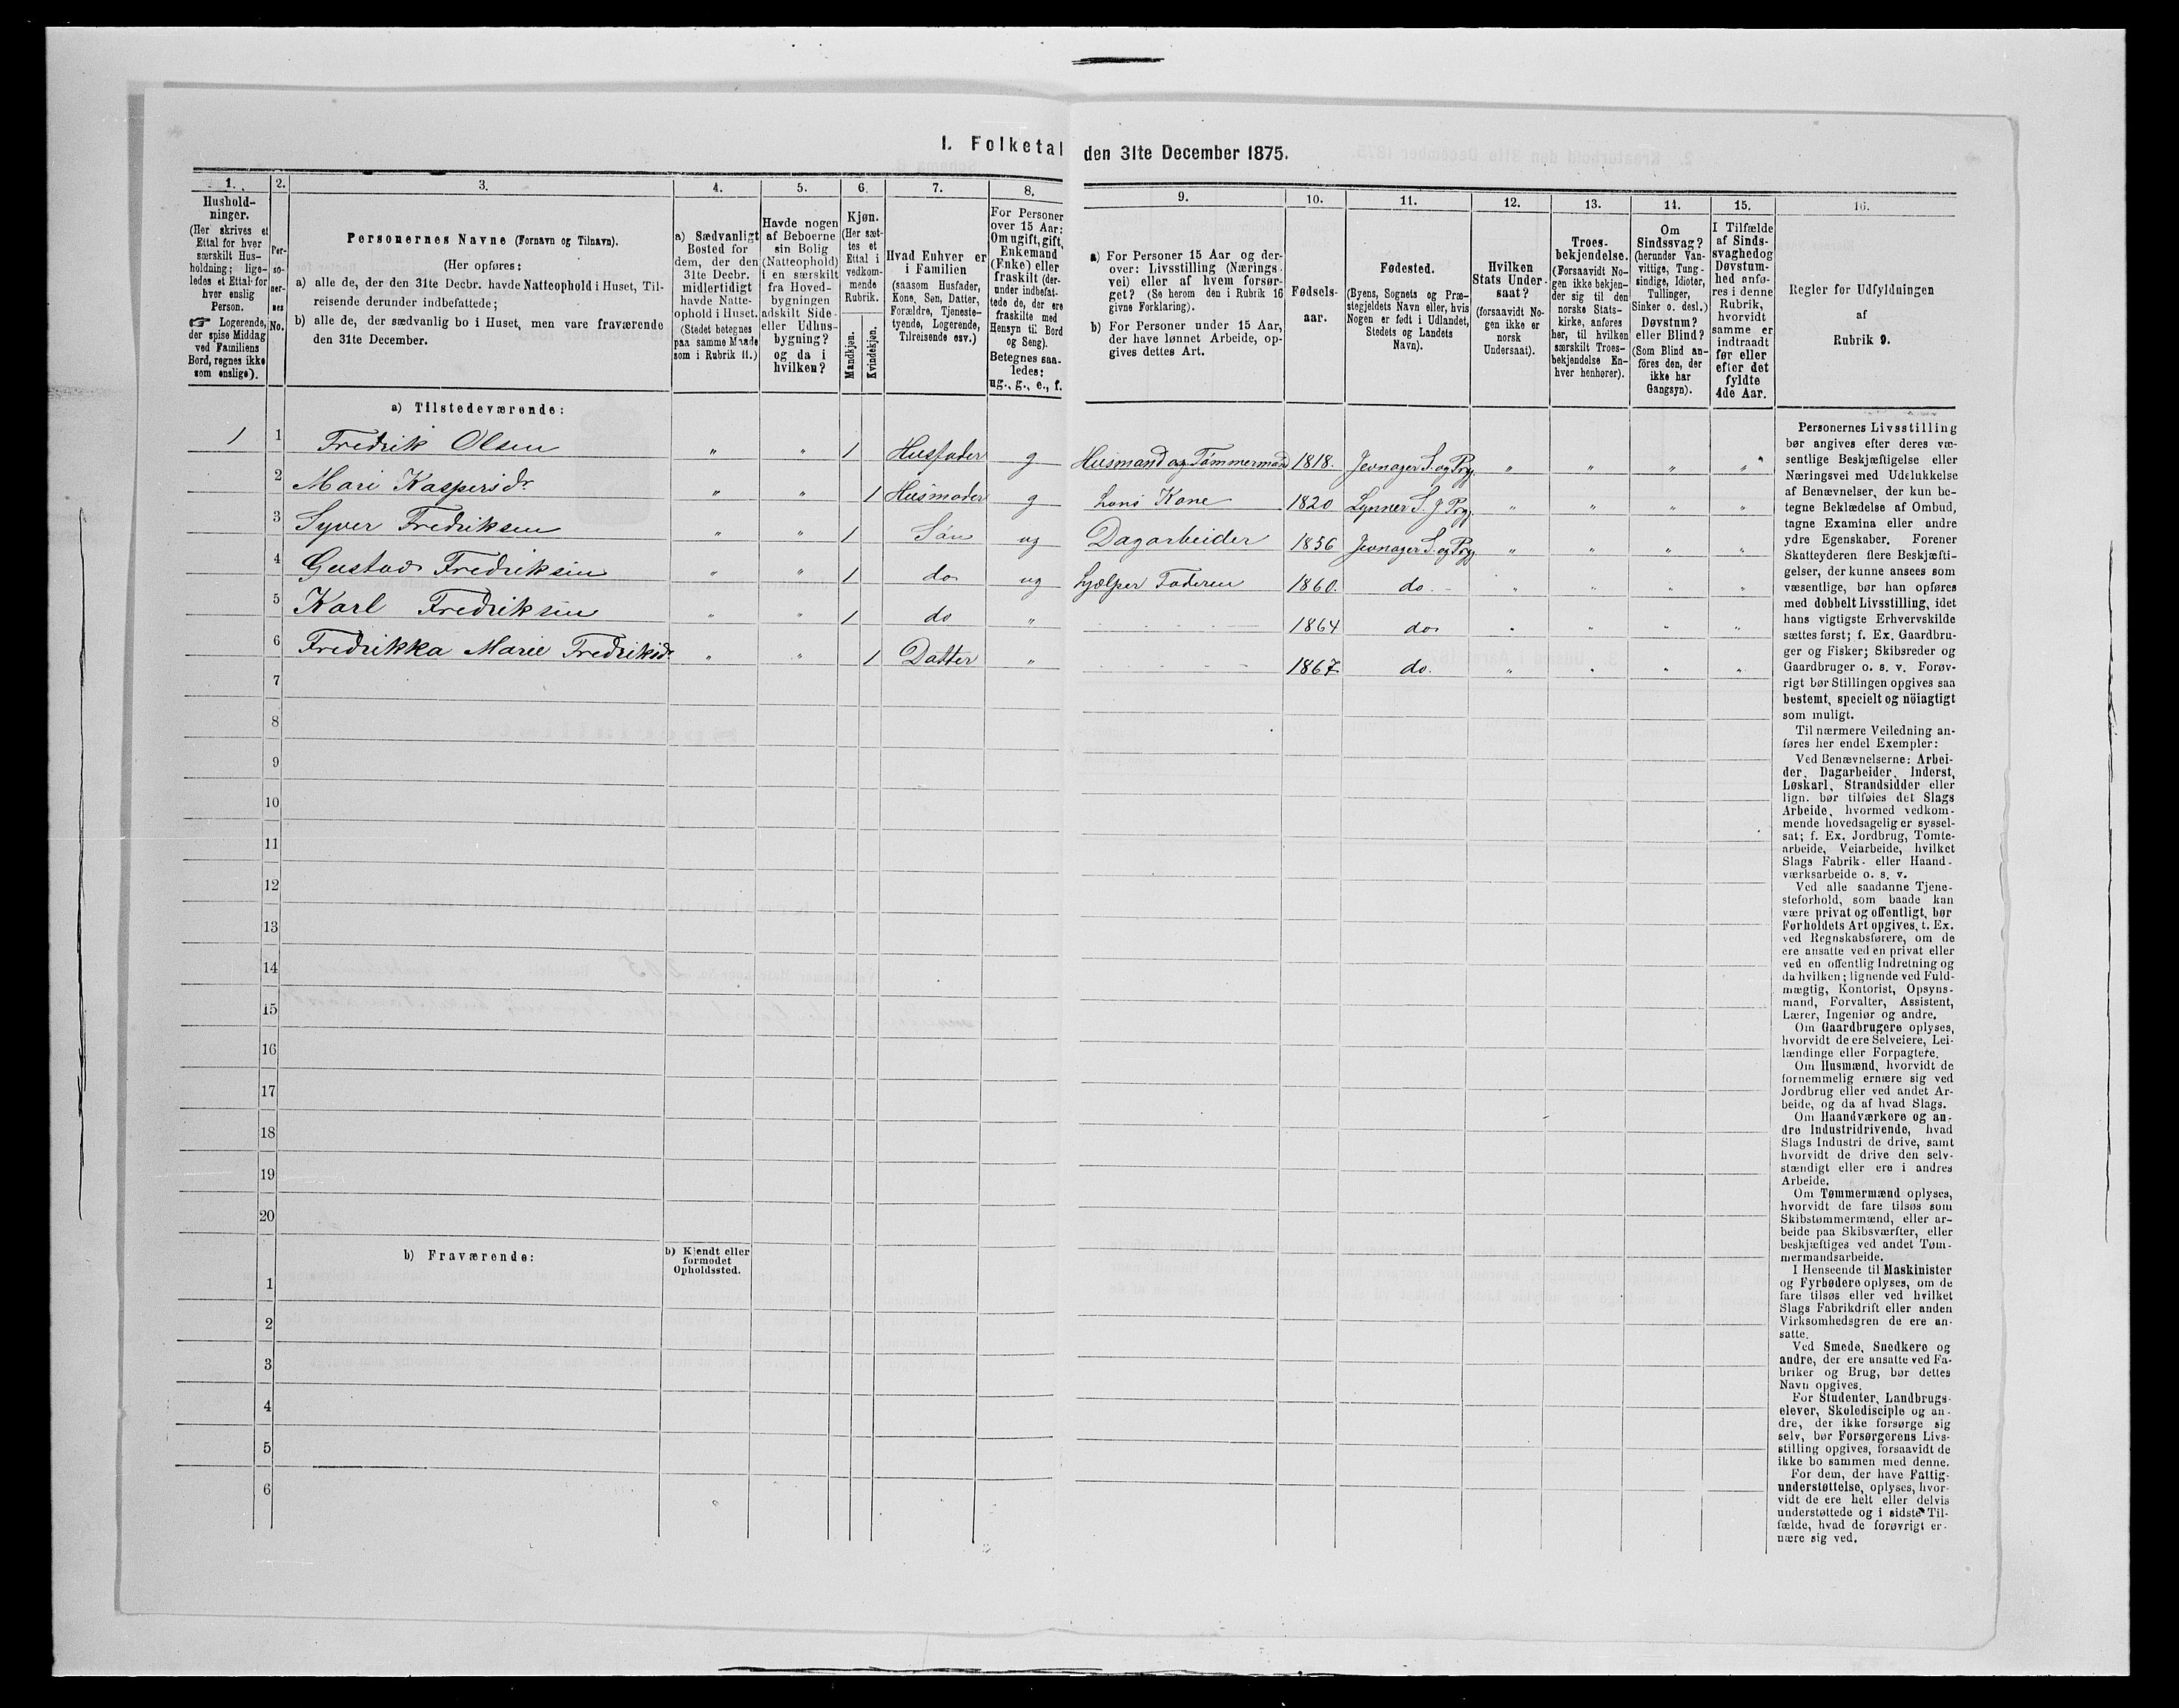 I. Folketal den 31te December 1875.
1.
Hushold-
ninger.
(Her skrives et
Ettal for hver
særskilt Hus-
holdning; lige-
ledes et Ettal for
hver enslig
Person.
☞ Logerende,
der spise Middag
ved Familiens
Bord, regnes ikke
som enslige).
2.
Per-
so-
ner-
nes
No.
3.
Personernes Navne (Fornavn og Tilnavn).
(Her opføres:
a) alle de, der den 31te Decbr. havde Natteophold i Huset, Til-
reisende derunder indbefattede;
b) alle de, der sædvanlig bo i Huset, men vare fraværende
den 31te December.
4.
a) Sædvanligt
Bosted for
dem, der den
31te Decbr.
midlertidigt
havde Natte-
ophold i Huset.
(Stedet betegnes
paa samme Maade
som i Rubrik 11.)
5.
Havde nogen
af Beboerne
sin Bolig
(Natteophold)
i en særskilt
fra Hoved-
bygningen
adskilt Side-
eller Udhus-
bygning?
og da i
hvilken?
6.
Kjøn.
(Her sæt-
tes et
Ettal i
vedkom-
mende
Rubrik.
Mandkjøn.
Kvindekjøn.
7.
Hvad Enhver er
i Familien
(saasom Husfader,
Kone, Søn, Datter,
Forældre, Tjeneste-
tyende, Logerende,
Tilreisende osv.)
8.
For Personer
over 15 Aar:
Om ugift, gift,
Enkemand
(Enke) eller
fraskilt (der-
under indbefat-
tede de, der ere
fraskilte med
Hensyn til Bord
og Seng).
Betegnes saa-
ledes:
ug., g., e., f.
9.
a) For Personer 15 Aar og der-
over: Livsstilling (Nærings-
vei) eller af hvem forsør-
get? (Se herom den i Rubrik 16
givne Forklaring).
b) For Personer under 15 Aar,
der have lønnet Arbeide, op-
gives dettes Art.
10.
Fødsels-
aar.
11.
Fødested.
(Byens, Sognets og Præ-
stegjeldets Navn eller, hvis
Nogen er født i Udlandet,
Stedets og Landets
Navn).
12.
Hvilken
Stats Under-
saat?
(forsaavidt No-
gen ikke er
norsk
Undersaat).
13.
Troes-
bekjendelse.
(Forsaavidt No-
gen ikke bekjen-
der sig til den
norske Stats-
kirke, anføres
her, til hvilken
særskilt Troes-
bekjendelse En-
hver henhører).
14.
Om
Sindssvag?
(herunder Van-
vittige, Tung-
sindige, Idioter,
Tullinger,
Sinker o. desl.)
Døvstum?
eller Blind?
(Som Blind an-
føres den, der
ikke har
Gangsyn).
15.
I Tilfælde
af Sinds-
svaghed og
Døvstum-
hed anfø-
res i denne
Rubrik,
hvorvidt
samme er
indtraadt
før eller
efter det
fyldte
4de Aar.
16.
Regler for Udfyldningen
af
Rubrik 9.
a) Tilstedeværende:
1 1 Fredrik Olsen " " 1 Husfader g Husmand og Tømmermand 1818. Jevnager S. og Prg. " " " "
2 Mari Kaspersdr " " 1 Husmoder g hans Kone 1820 Lynner S. J Prg. " " " "
3 Syver Fredriksen " " 1 Søn ug Dagarbeider 1856 Jevnager S. og Prg. " " " "
4 Gustav Fredriksen " " 1 do ug hjælper Faderen 1860. do. " " " "
5 Karl Fredriksen " " 1 do " 1864 do. " " " "
6 Fredrikka Marie Fredriksdr " " 1 Datter " 1867 do. " " " "
7
8
9
10
11
12
13
14
15
16
17
18
19
20
b) Fraværende:
b) Kjendt eller
formodet
Opholdssted.
1
2
3
4
5
6
Personernes Livsstilling
bør angives efter deres væ-
sentlige Beskjæftigelse eller
Næringsvei med Udelukkelse
af Benævnelser, der kun be-
tegne Beklædelse af Ombud,
tagne Examina eller andre
ydre Egenskaber. Forener
Skatteyderen flere Beskjæfti-
gelser, der kunne ansees som
væsentlige, bør han opføres
med dobbelt Livsstilling, idet
hans vigtigste Erhvervskilde
sættes først; f. Ex. Gaardbru-
ger og Fisker; Skibsreder og
Gaardbruger o. s. v. Forøv-
rigt bør Stillingen opgives saa
bestemt, specielt og nöiagtigt
som muligt.
Til nærmere Veiledning an-
føres her endel Exempler:
Ved Benævnelserne: Arbei-
der, Dagarbeider, Inderst,
Løskarl, Strandsidder eller
lign. bør tilføies det Slags
Arbeide, hvormed vedkom-
mende hovedsagelig er syssel-
sat; f. Ex. Jordbrug, Tomte-
arbeide, Veiarbeide, hvilket
Slags Fabrik- eller Haand-
værksarbeide o. s. v.
Ved alle saadanne Tjene-
steforhold, som baade kan
være privat og offentligt, bør
Forholdets Art opgives, t. Ex.
ved Regnskabsførere, om de
ere ansatte ved en privat eller
ved en offentlig Indretning og
da hvilken; lignende ved Fuld-
mægtig, Kontorist, Opsyns-
mand, Forvalter, Assistent,
Lærer, Ingeniør og andre.
Om Gaardbrugere oplyses,
hvorvidt de ere Selveiere, Lei-
lændinge eller Forpagtere.
Om Husmænd, hvorvidt de
fornemmelig ernære sig ved
Jordbrug eller ved andet Ar-
beide, og da af hvad Slags.
Om Haandværkere og an-
dre Industridrivende, hvad
Slags Industri de drive, samt
hvorvidt de drive den selv-
stændigt eller ere i andres
Arbeide.
Om Tømmermænd oplyses,
hvorvidt de fare tilsøs som
Skibstømmermænd, eller ar-
beide paa Skibsværfter, eller
beskjæftiges ved andet Tøm-
mermandsarbeide.
I Henseende til Maskinister
og Fyrbødere oplyses, om de
fare tilsøs eller ved hvilket
Slags Fabrikdrift eller anden
Virksomhedsgren de ere an-
satte.
Ved Smede, Snedkere og
andre, der ere ansatte ved Fa-
briker og Brug, bør dettes
Navn opgives.
For Studenter, Landbrugs-
elever, Skoledisciple og an-
dre, der ikke forsørge sig
selv, bør Forsørgerens Livs-
stilling opgives, forsaavidt de
ikke bo sammen med denne.
For dem, der have Fattig-
understøttelse, oplyses, hvor-
vidt de ere helt eller delvis
understøttede og i sidste Til-
fælde, hvad de forøvrigt er-
nære sig ved.